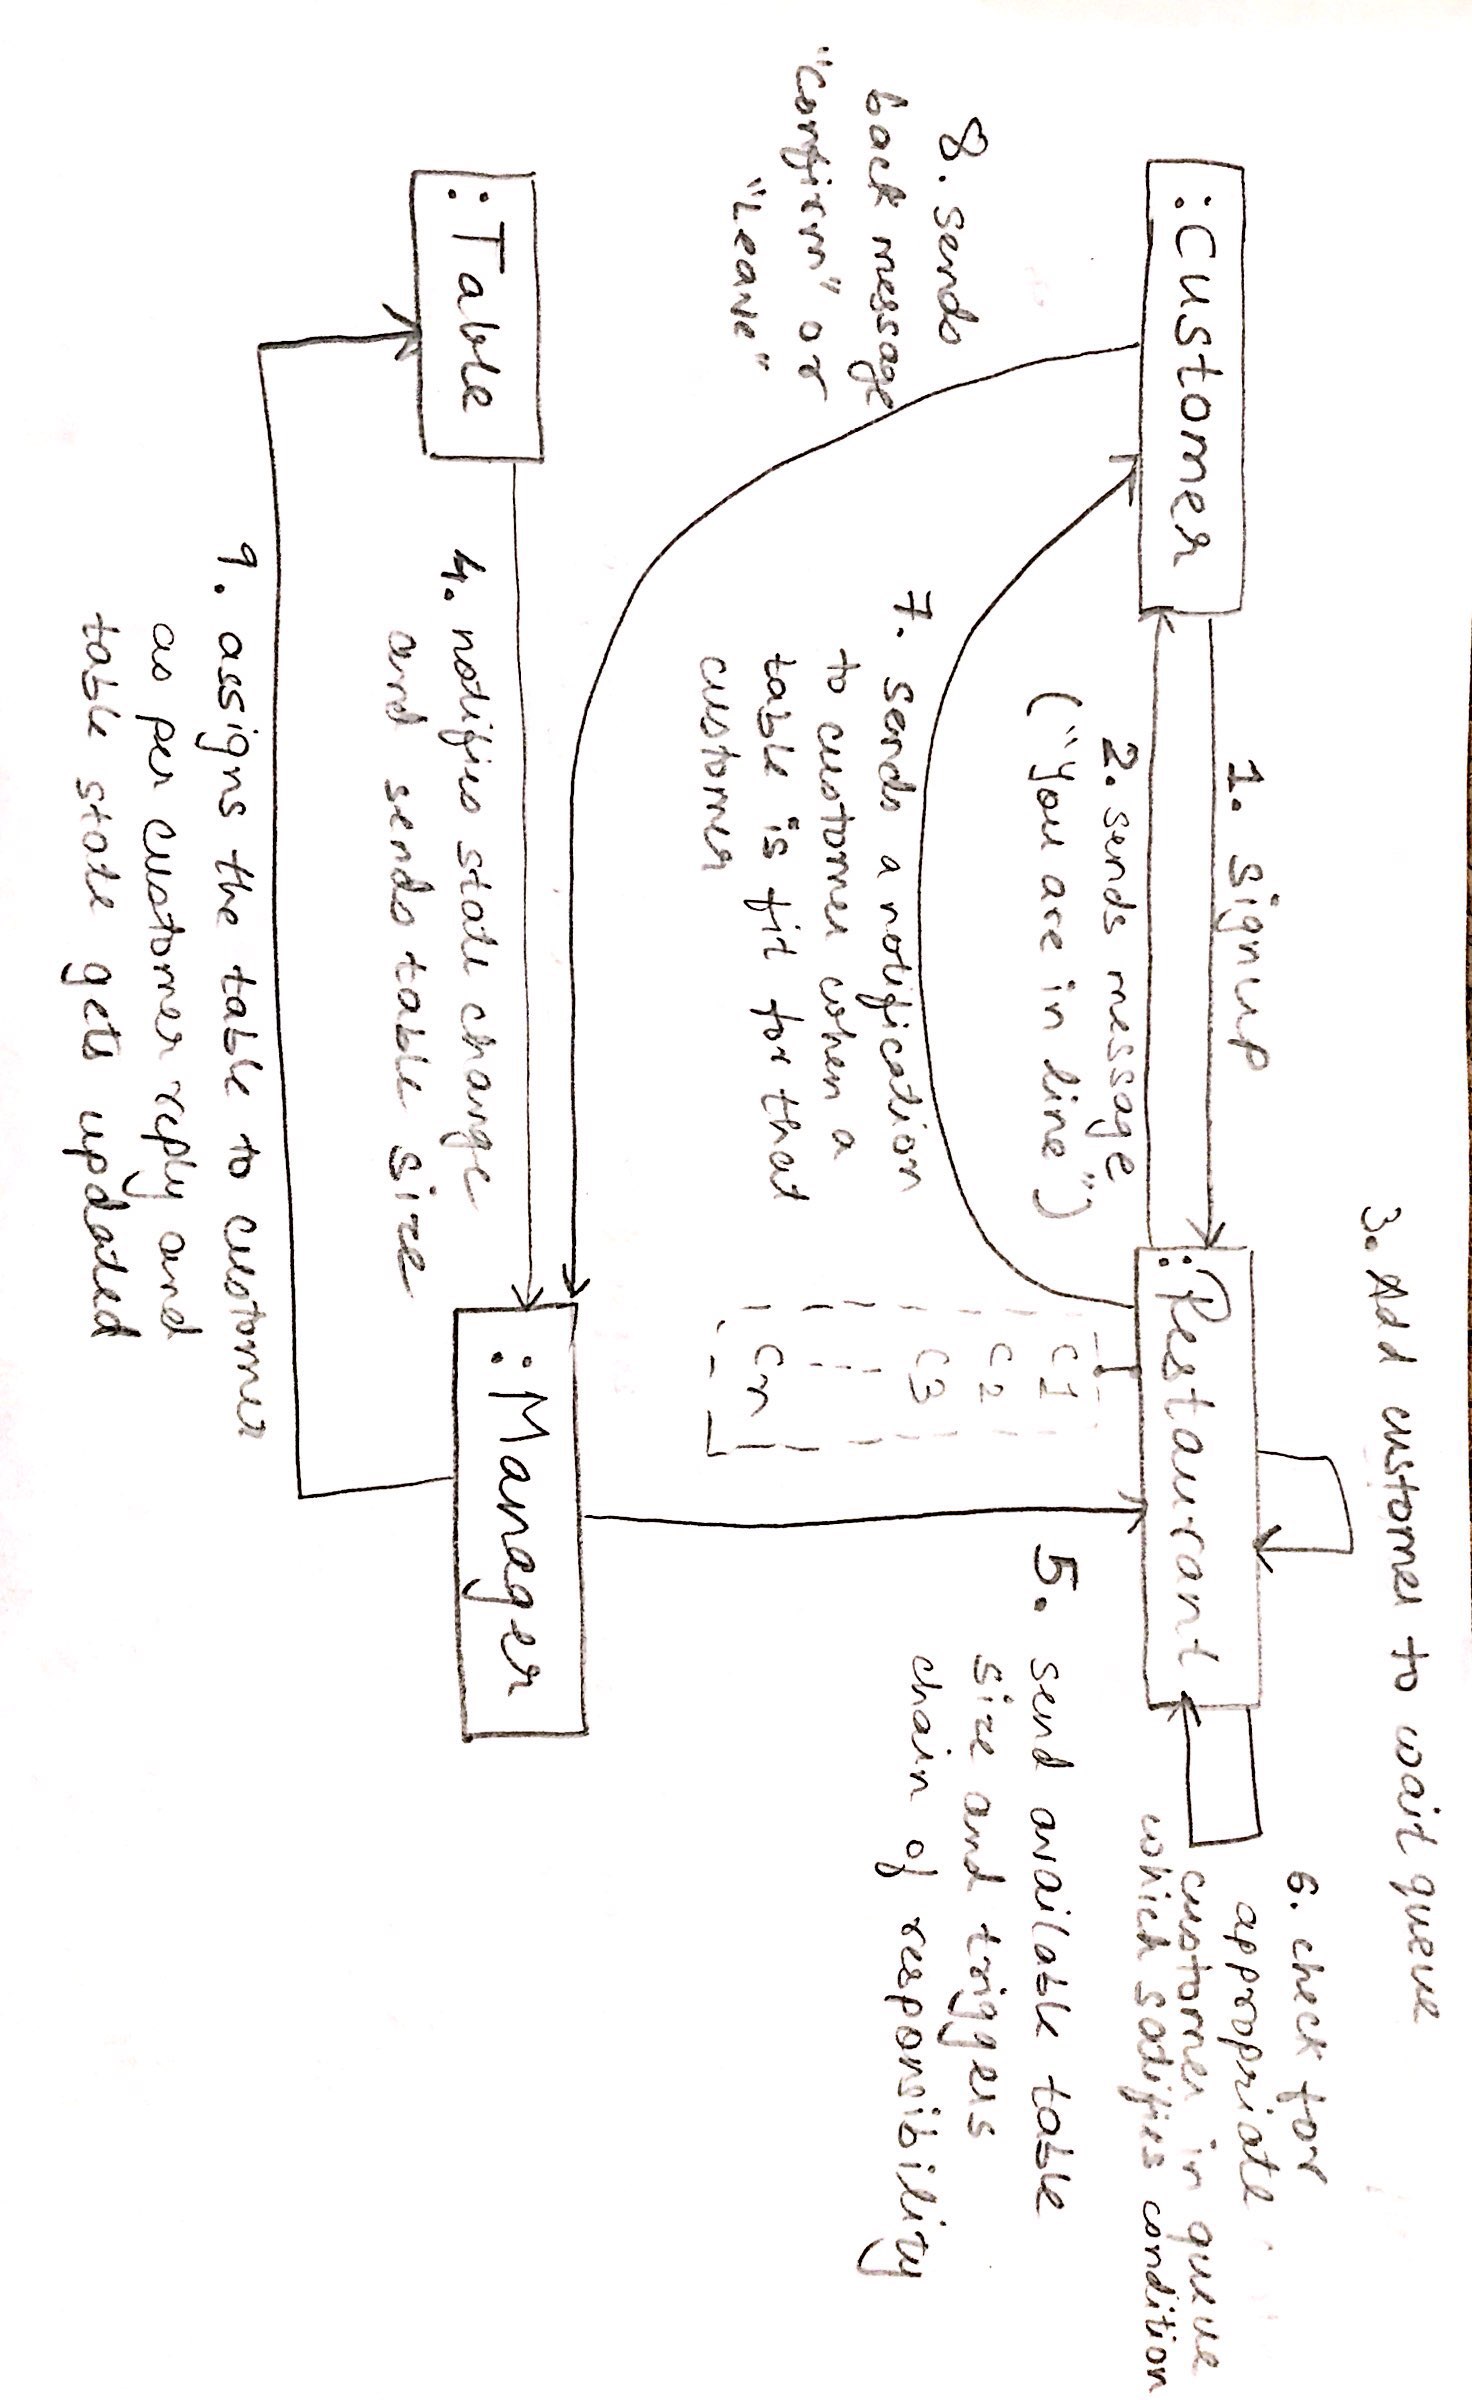 3. Add customer to wait queue
6. check for
appropriate
customer in queue
which satifies condition
1. signup
:Customer
:Restaurant
2. sends message
("You are in line")
C1
C2
C3
Cn
5. send available table
size and triggers
chain of responsibility
8. sends
back message
"Confirm" or
"Leave"
7. sends a notification
to customer when a
table is fit for that
customer
:Table
:Manager
4. notifies state change
and sends table size
9. assigns the table to customer
as per customer reply and
table state gets updated